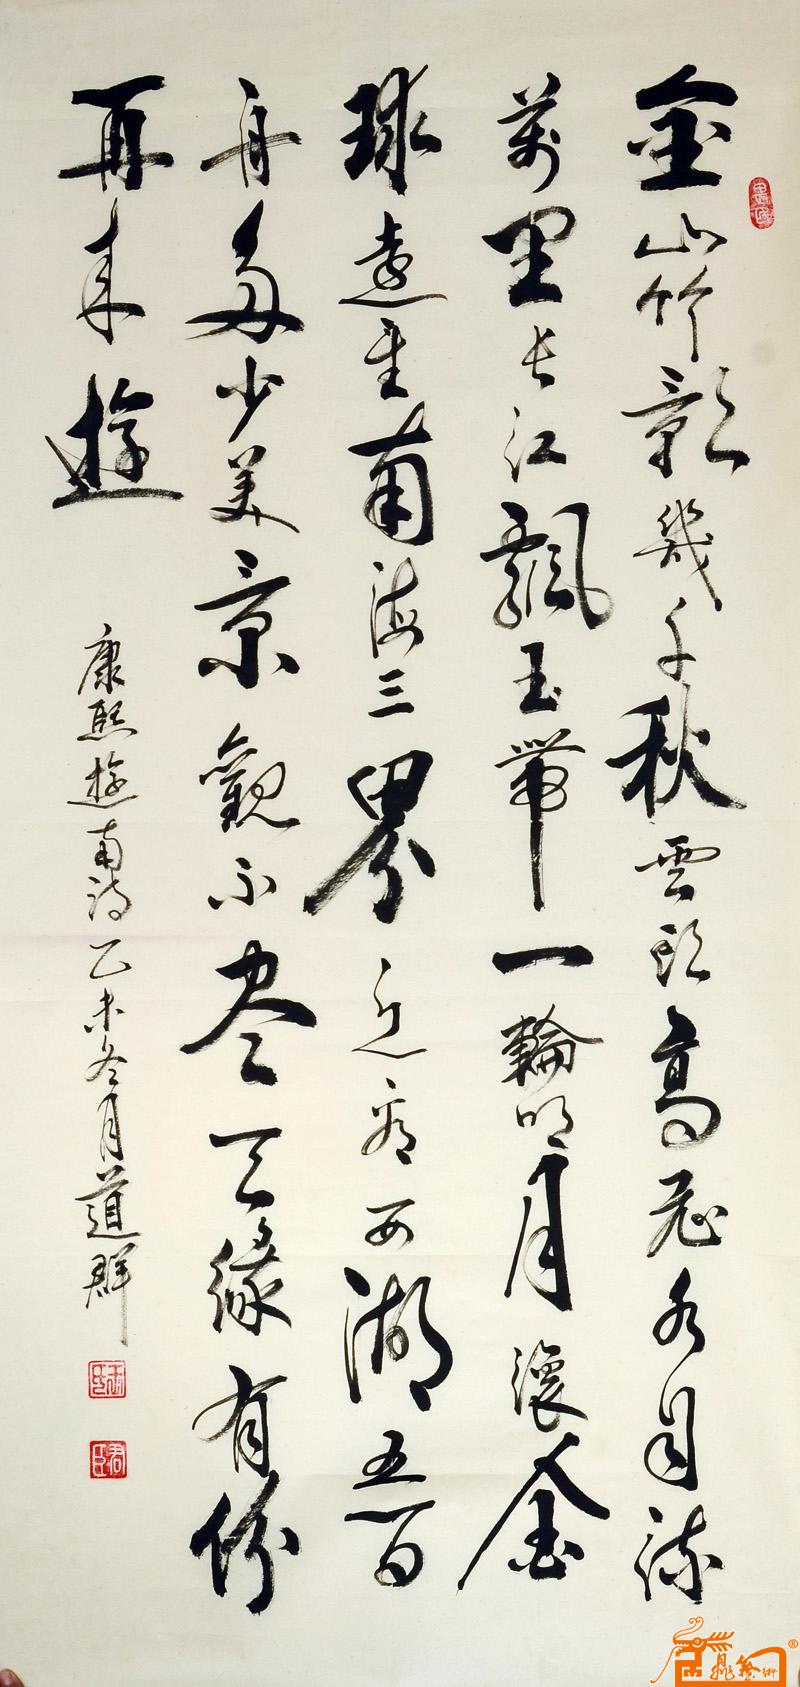 金山竹影幾千秋雲鎖高飛水自流
萬里長江飄玉帶一輪明月滾金
球遠至南海三界近看西湖五百
舟多少美景觀不尽天緣有份
再来遊
康熙遊南詩乙未冬月道群